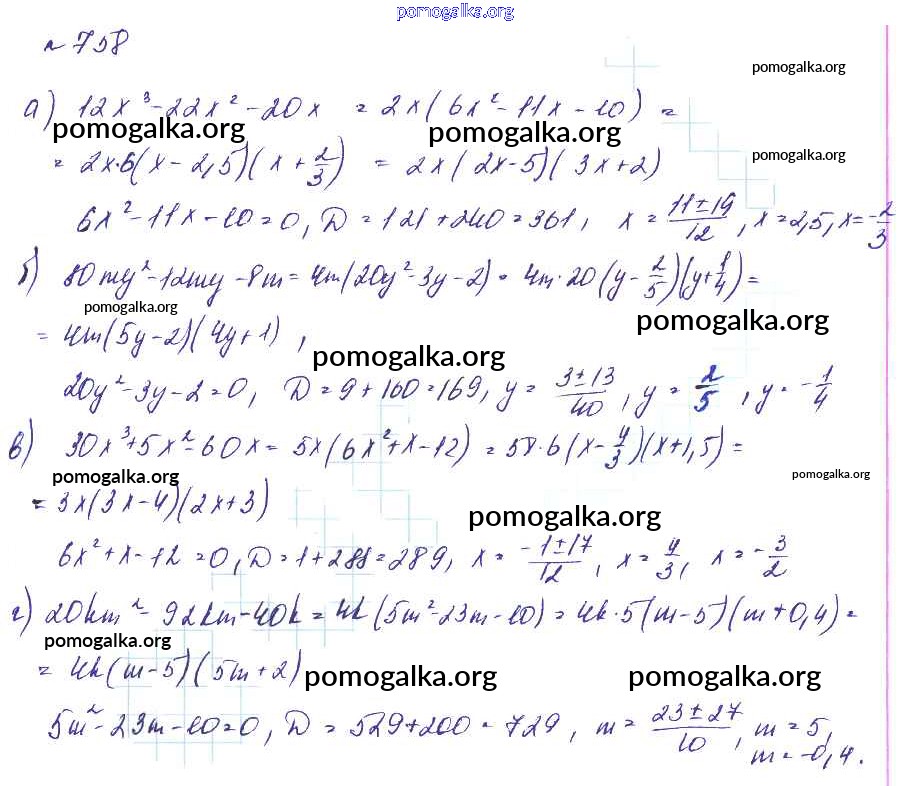 pomogalka.org
№ 758
pomogalka.org
а) 12x³-22x²-20x = 2x(6x²-11x-10) =
pomogalka.org pomogalka.org
= 2x·6(x-2,5)(x+2/3) = 2x(2x-5)(3x+2)
pomogalka.org
6x²-11x-10=0, D=121+240=361, x=(11±19)/12, x=2,5, x=-2/3
б) 80my²-12my-8m=4m(20y²-3y-2)=4m·20(y-2/5)(y+1/4)=
pomogalka.org pomogalka.org
=4m(5y-2)(4y+1),
pomogalka.org
20y²-3y-2=0, D=9+160=169, y=(3±13)/40, y=2/5, y=-1/4
в) 30x³+5x²-60x=5x(6x²+x-12)=5x·6(x-4/3)(x+1,5)=
pomogalka.org pomogalka.org
=3x(3x-4)(2x+3)
pomogalka.org
6x²+x-12=0, D=1+288=289, x=(-1±17)/12, x=4/3, x=-3/2
г) 20km²-92km-40k=4k(5m²-23m-10)=4k·5(m-5)(m+0,4)=
pomogalka.org
=4k(m-5)(5m+2)
pomogalka.org pomogalka.org
5m²-23m-10=0, D=529+200=729, m=(23±27)/10, m=5,
m=-0,4.